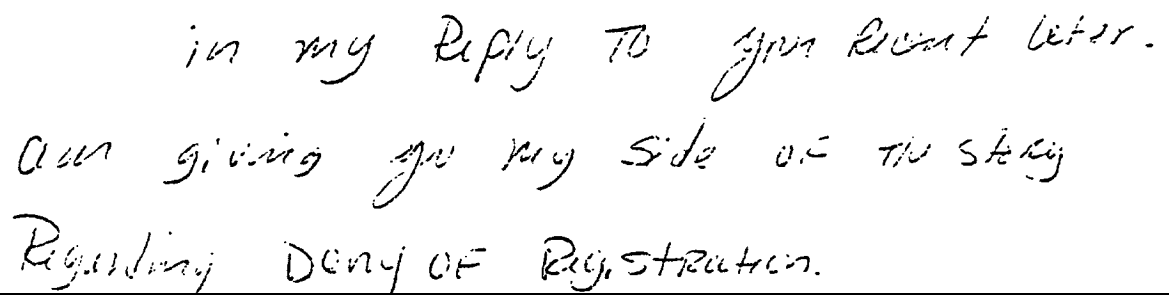 in my Reply To your Recent letter.
am giving you my side OF the story
Regarding Deny OF Registration.